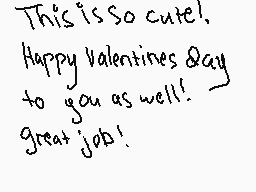 This is so cute!,
Happy Valentines Day
to you as well!
great job!